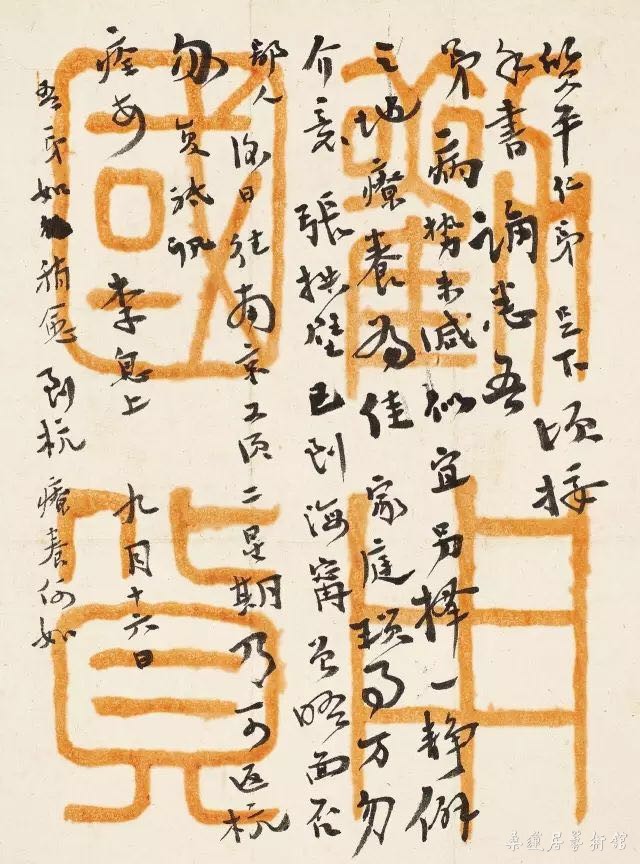 質平仁弟足下頃接
手書誦悉吾
弟病勢未減似宜另擇一靜僻
之地療養為佳家庭瑣事万勿
介意張拱璧已到海甯曾晤面否
鄙人日往南京須二星期乃可返杭
勿复祗訊
痊安 李息上 九月十六日
吾弟如稍愈到杭療養何如
桑蓮居藝術館